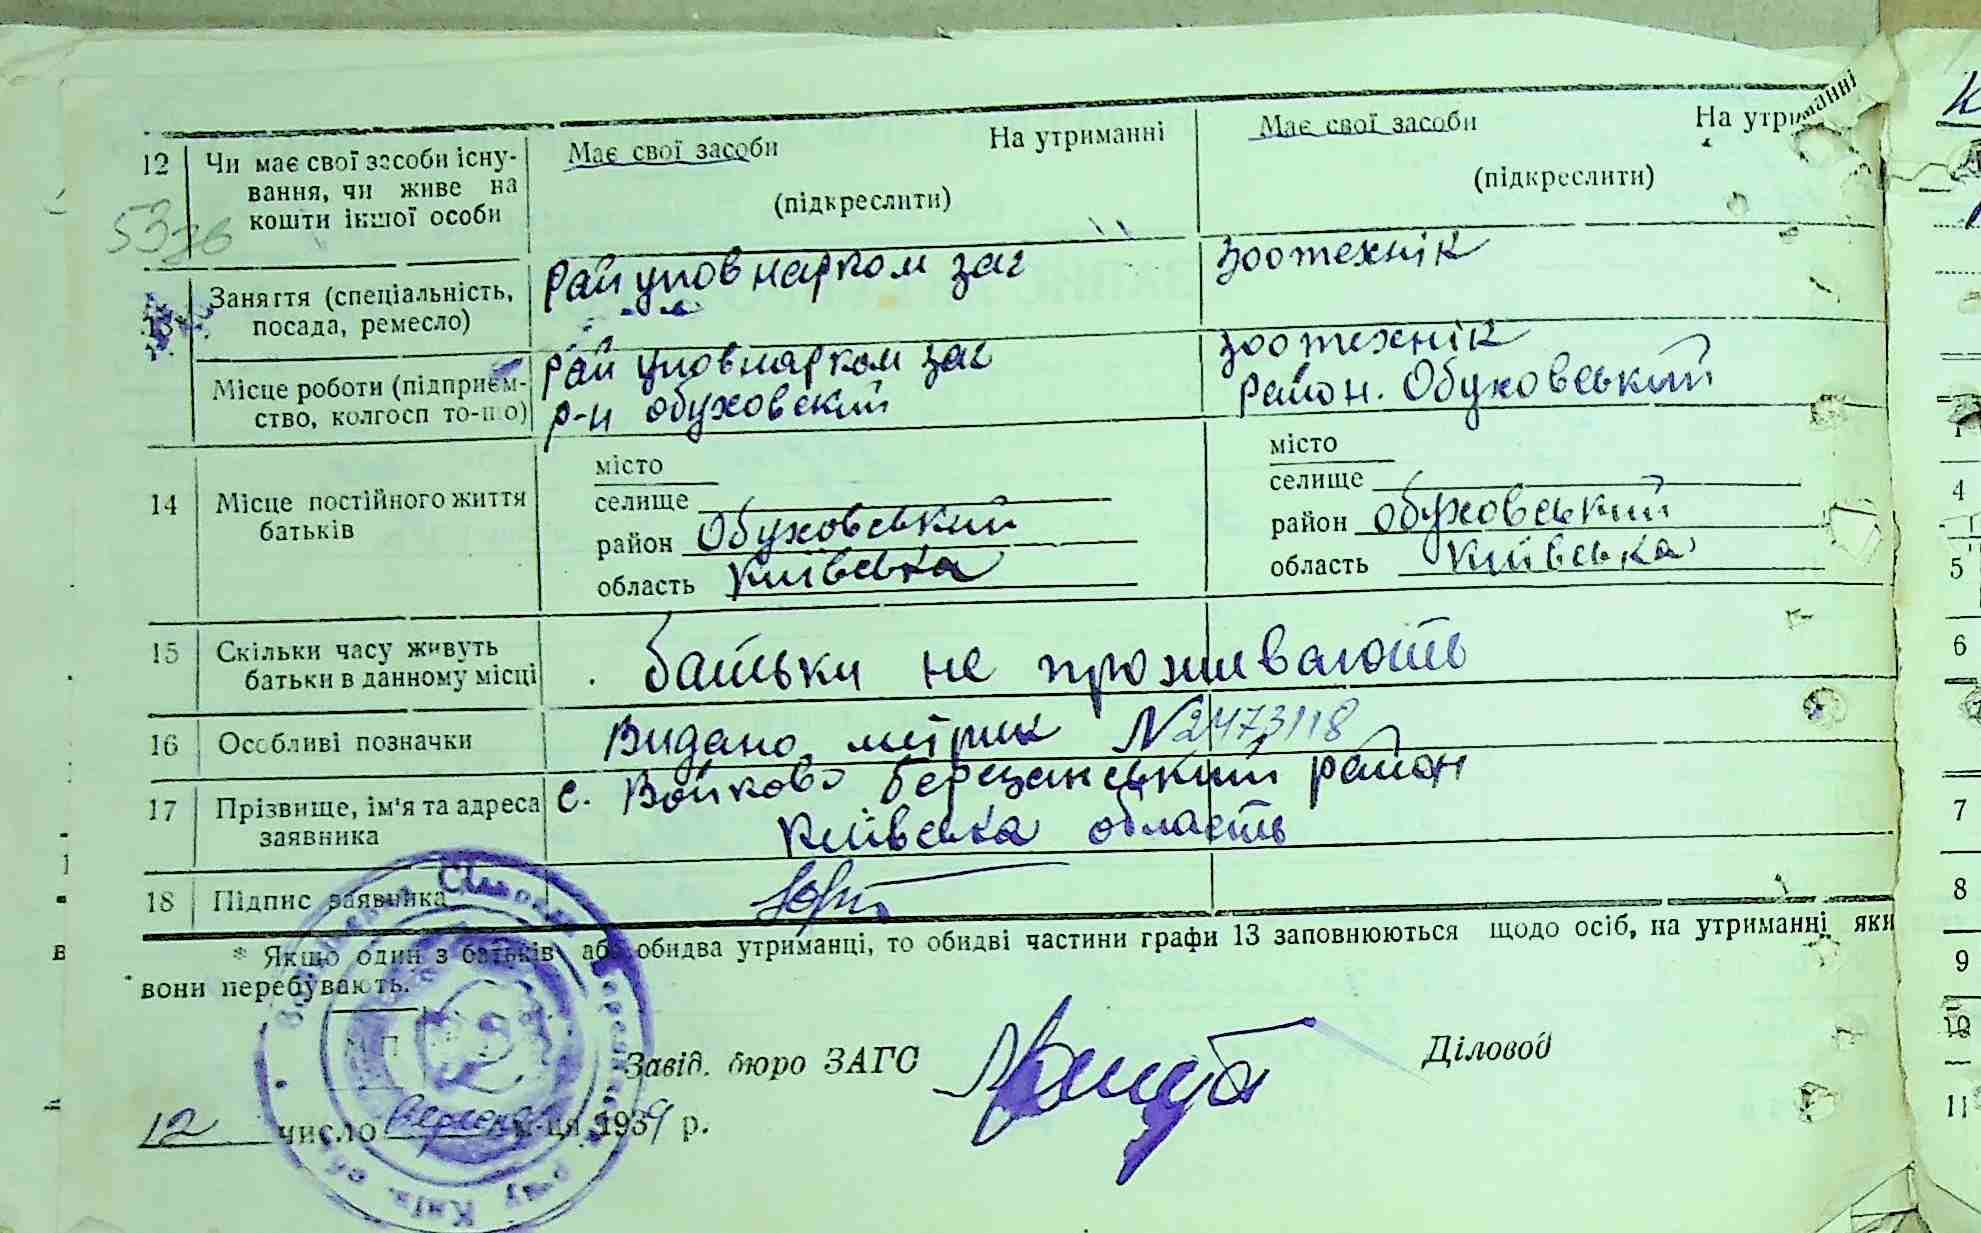 12 Чи має свої засоби існу- Має свої засоби На утриманні Має свої засоби На утриманні
вання, чи живе на (підкреслити) (підкреслити)
кошти іншої особи
13 Заняття (спеціальність, Рай упов нарком заг зоотехнік
посада, ремесло)
Місце роботи (підприєм- Рай уповнарком заг зоотехнік
ство, колгосп то-що) р-н обуховский район. Обуховський
14 Місце постійного життя місто місто
батьків селище селище
район Обуховський район Обуховський
область Київська область Київська
15 Скільки часу живуть батьки не проживають
батьки в данному місці
16 Особливі позначки Видано метрик N2473118
17 Прізвище, ім'я та адреса с. Войково березанський район
заявника Київська область
18 Підпис заявника
* Якщо один з батьків або обидва утриманці, то обидві частини графи 13 заповнюються щодо осіб, на утриманні яки
вони перебувають.
М П
Завід. бюро ЗАГС Діловод
12 число вересня м-ця 1939 р.
4
5
6
7
8
9
10
11